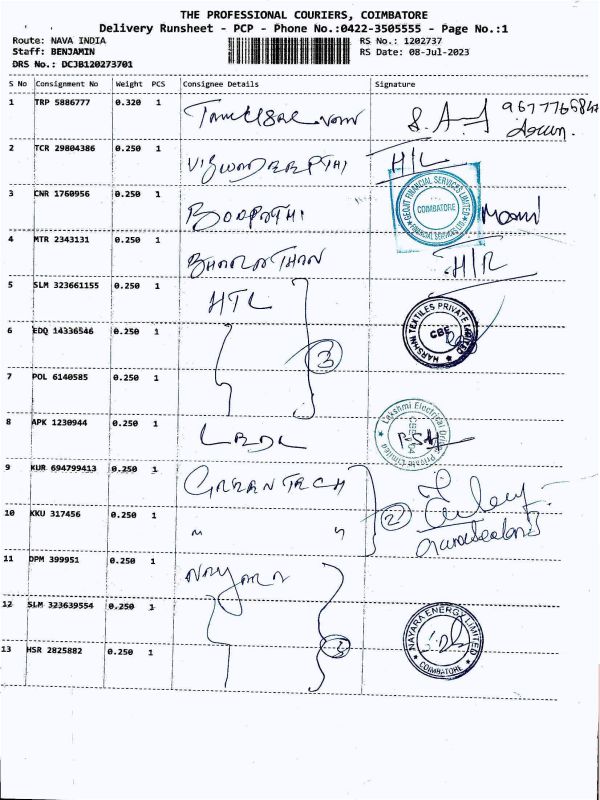 THE PROFESSIONAL COURIERS, COIMBATORE
Delivery Runsheet - PCP - Phone No.:0422-3505555 - Page No.:1
Route: NAVA INDIA RS No.: 1202737
Staff: BENJAMIN RS Date: 08-Jul-2023
DRS No.: DCJB120273701
S No Consignment No Weight PCS Consignee Details Signature
1 TRP 5886777 0.320 1
2 TCR 29804386 0.250 1 H/L
3 CNR 1760956 0.250 1 BOOPATHI
GEOJIT FINANCIAL SERVICES LIMITED
COIMBATORE
4 MTR 2343131 0.250 1 BHARATHAN H/R
5 SLM 323661155 0.250 1 HTL
HARSHNI TEXTILES PRIVATE LIMITED
CBE
6 EDQ 14336546 0.250 1 3
7 POL 6140585 0.250 1
8 APK 1230944 0.250 1 LEDL
Lakshmi Electrical Drives Private Limited
9 KUR 694799413 0.250 1 GREENTECH
10 KKU 317456 0.250 1 " " 2
11 DPM 399951 0.250 1 NAYARA
12 SLM 323639554 0.250 1
NAYARA ENERGY LIMITED
COIMBATORE
13 HSR 2825882 0.250 1 3